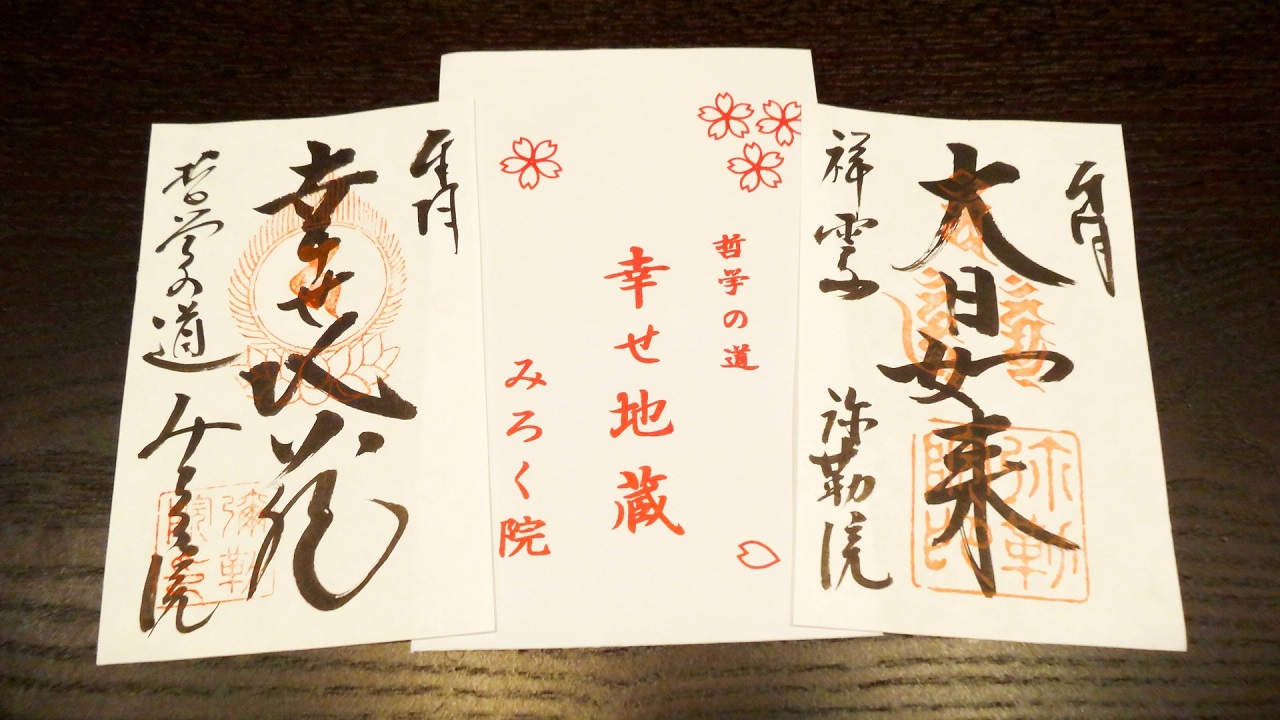 年月
幸せ地蔵
哲学の道
みろく院
彌勒院
哲学の道
幸せ地蔵
みろく院
年月
大日如来
祥雲山
弥勒院
弥勒
院印